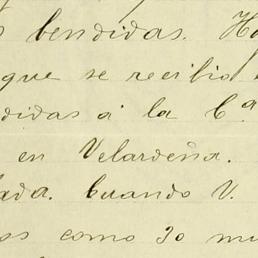 s bendidas. Ha
que se recibio
didas á la C.ª
en Velardeña.
ada. Cuando V.
os como 30 mi